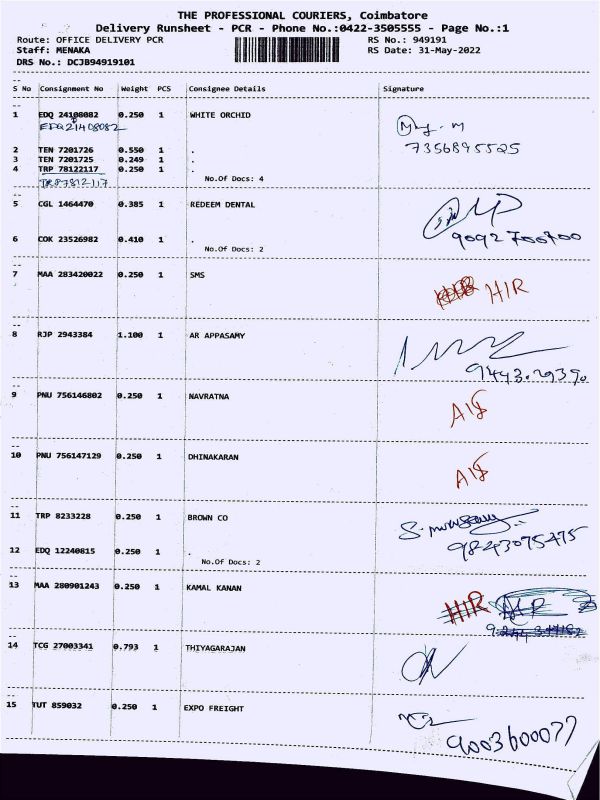 THE PROFESSIONAL COURIERS, Coimbatore
Delivery Runsheet - PCR - Phone No.:0422-3505555 - Page No.:1
Route: OFFICE DELIVERY PCR RS No.: 949191
Staff: MENAKA RS Date: 31-May-2022
DRS No.: DCJB94919101
S No Consignment No Weight PCS Consignee Details Signature
1 EDQ 24108082 0.250 1 WHITE ORCHID
EDQ21408082
2 TEN 7201726 0.550 1 .
7356895525
3 TEN 7201725 0.249 1 .
4 TRP 78122117 0.250 1 .
TRP87812117 No.Of Docs: 4
5 CGL 1464470 0.385 1 REDEEM DENTAL
6 COK 23526982 0.410 1 .
9092700700
No.Of Docs: 2
7 MAA 283420022 0.250 1 SMS
HIR
8 RJP 2943384 1.100 1 AR APPASAMY
9443.29390
9 PNU 756146802 0.250 1 NAVRATNA
10 PNU 756147129 0.250 1 DHINAKARAN
11 TRP 8233228 0.250 1 BROWN CO
12 EDQ 12240815 0.250 1 .
9843075475
No.Of Docs: 2
13 MAA 280901243 0.250 1 KAMAL KANAN
14 TCG 27003341 0.793 1 THIYAGARAJAN
15 TUT 859032 0.250 1 EXPO FREIGHT
9003600077